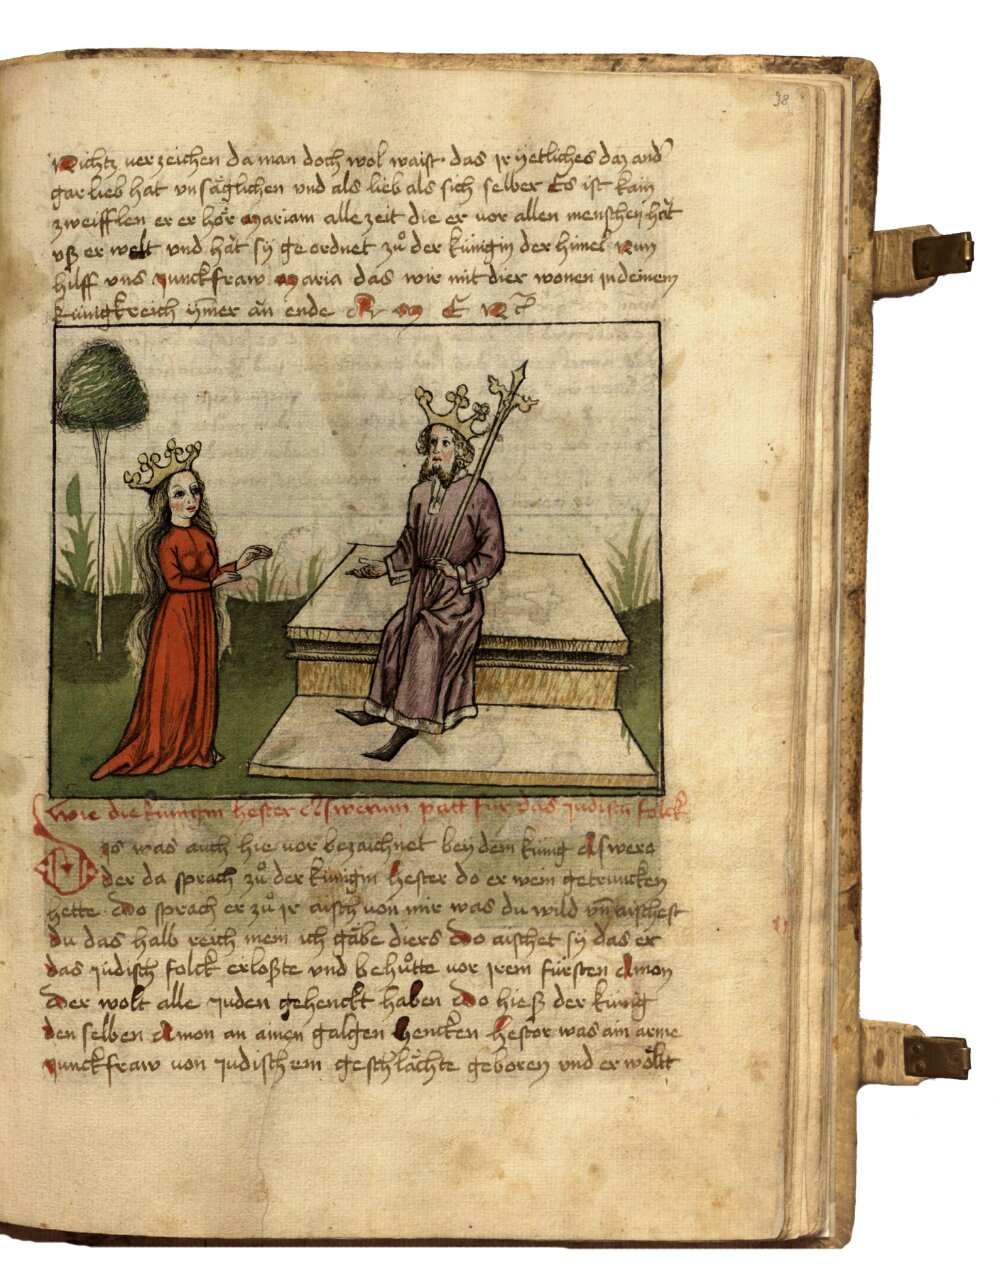 38
Nichtz verzeichen da man doch wol waist das ir yetliches daz and'
gar lieb hat vnsäglichen vnd als lieb als sich selber Es ist kain
zweifflen er er hör Mariam alle zeit die er vor allen menschen hät
vß er welt vnd hät sy ge ordnet zuͦ der künigin der himel Nun
hilff vns Junckfraw Maria das wir mit dier wonen in deinem
künigkreich ymer än ende A M E N
Wie die künigin hester Aswerum patt für das Judisch folck
Dis was auch hie vor bezaichnet bey dem künig Aswero
der da sprach zuͦ der künigin hester do er wein getruncken
hette Do sprach er zuͦ ir aisch von mir was du wild vn̄ aischest
du das halb reich mein ich gäbe diers Do aischet sy das er
das Judisch folck erloßte vnd behuͦtte vor irem fürsten Amon
Der wolt alle Juden gehenckt haben Do hieß der künig
den selben Amon an ainen galgen hencken hester was ain arme
Junckfraw von Judischem geschlächte geboren vnd er wölt